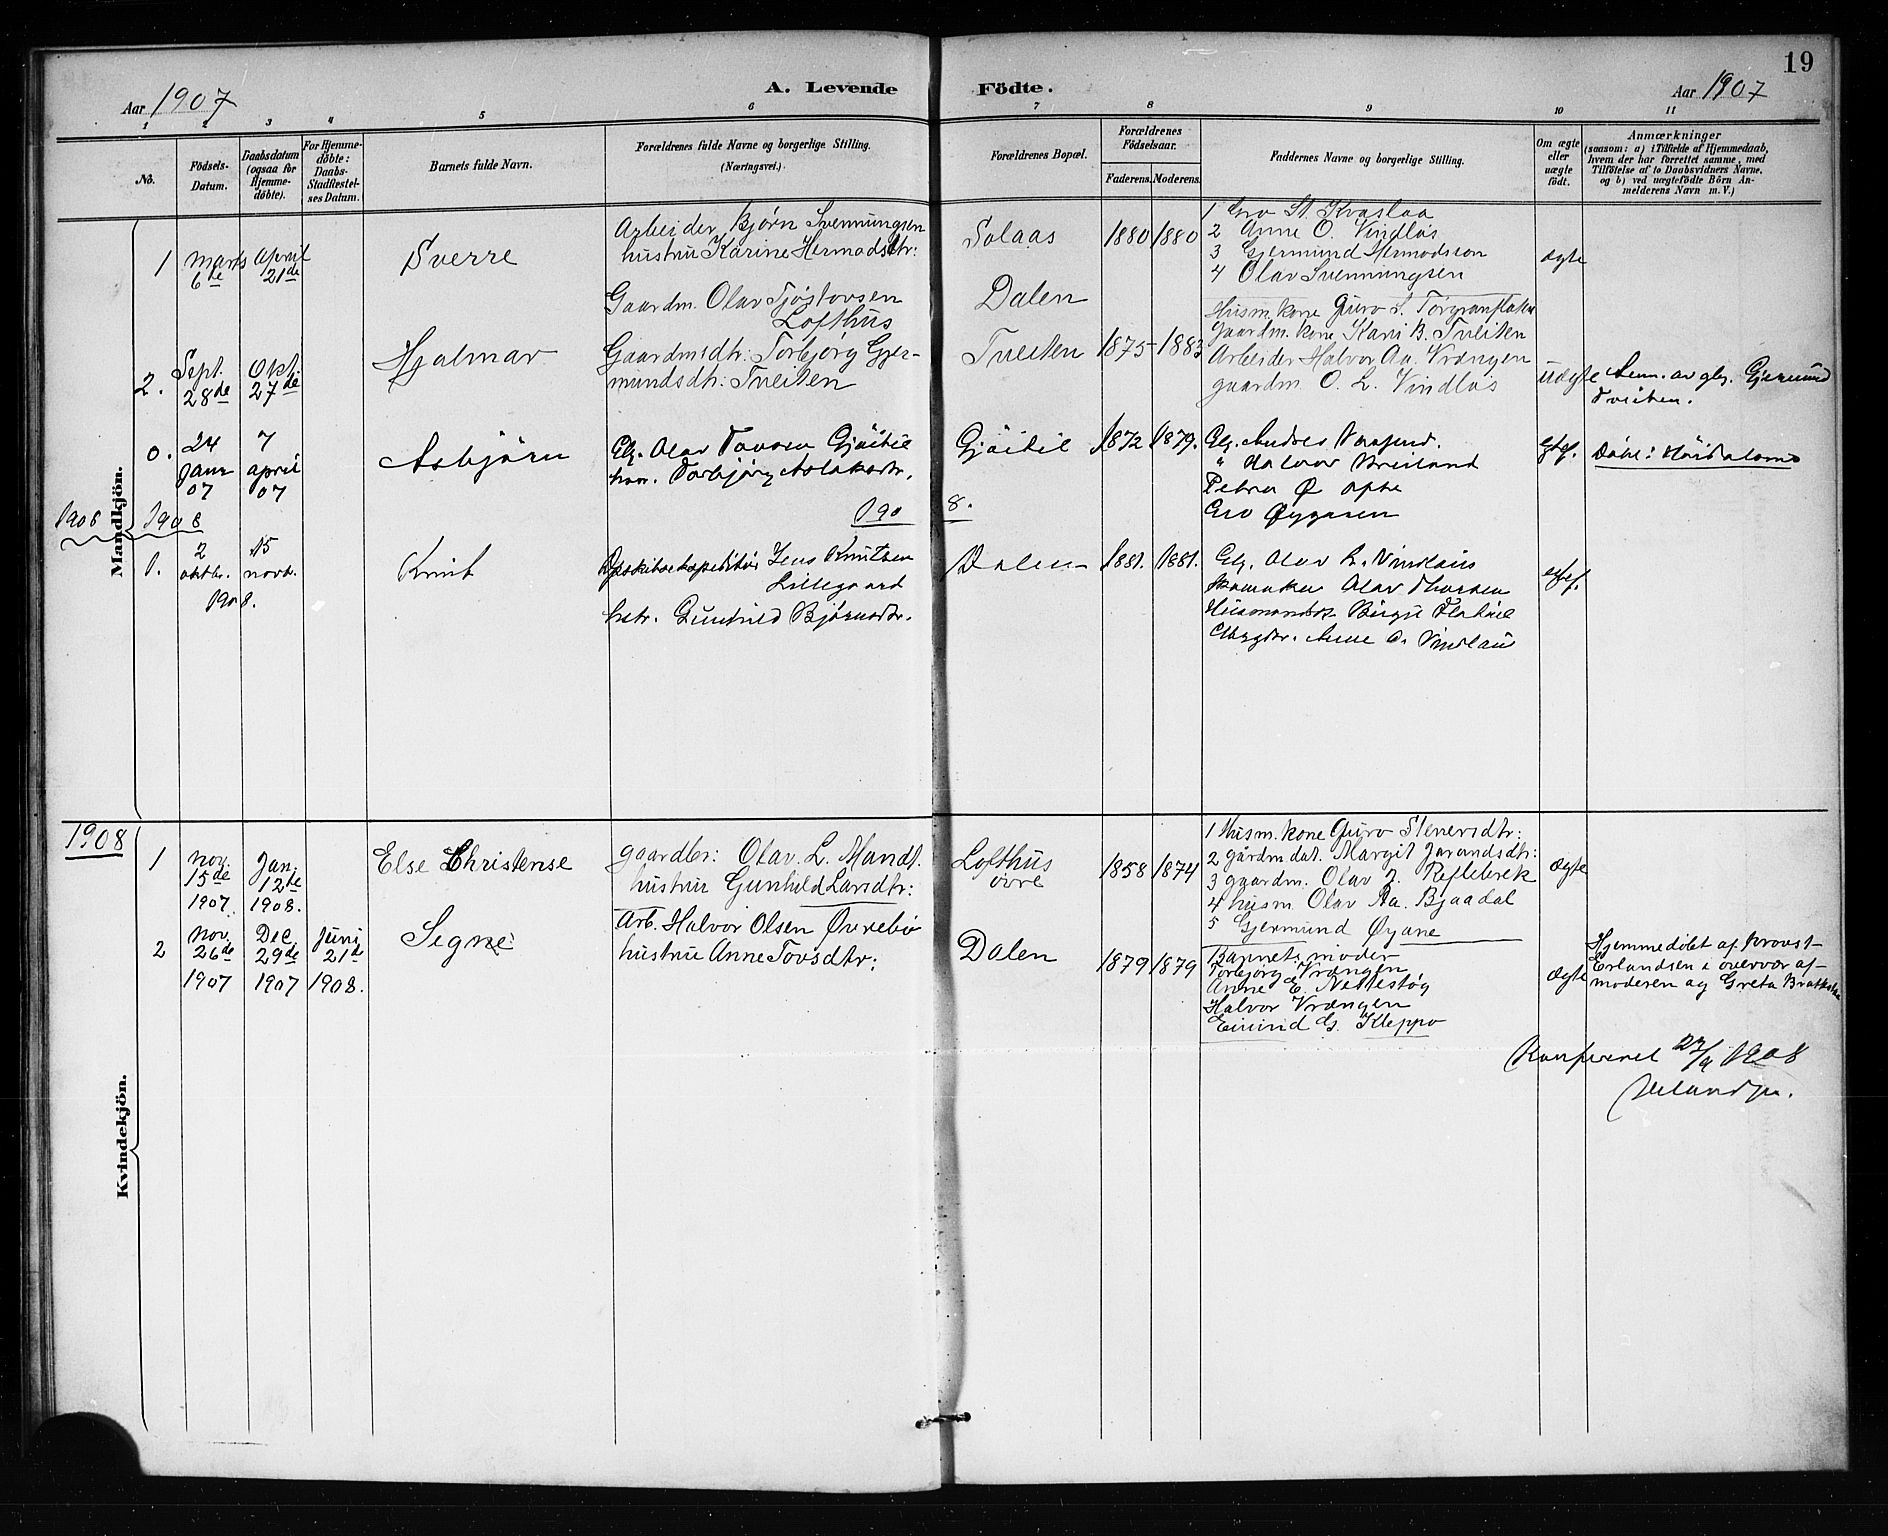 19
Aar 1907 A. Levende Födte. Aar 1907
1 2 3 4 5 6 7 8 9 10 11
No.
Födsels-Datum.
Daabsdatum (ogsaa for Hjemme-döbte).
For Hjemme-döbte: Daabs-Stadfæstel-ses Datum.
Barnets fulde Navn.
Forældrenes fulde Navne og borgerlige Stilling.
(Næringsvei.)
Forældrenes Bopæl.
Forældrenes Födselsaar.
Faderens. Moderens.
Faddernes Navne og borgerlige Stilling.
Om ægte eller uægte födt.
Anmærkninger
(saasom: a) i Tilfælde af Hjemmedaab, hvem der har forrettet samme, med Tilföielse af to Daabsvidners Navne, og b) ved uægtefödte Börn An-melderens Navn m. V.)
Mandkjön.
1 Marts 6te April 21de
Sverre
Arbeider Bjørn Svennungsen
hustru Karine Hermodsdtr:
Solaas 1880 1880
1 Gro St. Kvaslaa
2 Anne O. Vindlös
3 Gjermund Hermodson
4 Olav Svennungsen
ægte
2. Sept. 28de Okt. 27de
Hjalmar
Gaardm. Olav Tjöstovsen
Lofthus
Gaardmsdtr: Torbjørg Gjer-
mundsdtr: Tveiten
Dalen
Tveiten 1875 1883
Husm. kone Guro S.
Gaardm. kone Kari B. Tveiten
Arbeider Halvor Aa. Vrængen
gaardm. O. L. Vindlös
uægte
Anm. av gbr. Gjermund
Tveiten.
0. 24 Janr 07 7 april 07
Asbjørn
Olav Tovsen
Torbjørg Aslaksdtr.
1872 1879.
Halvor
Petra
Gro Øygasen
Døbt i Høidalsmo
1908 1908 1908.
1. 2 oktbr. 15 novbr. 1908.
Knut
Jens Knutsen
Lillegaard
hstr. Gunhild Bjørnsdtr.
Dalen 1881. 1881.
Olav L. Vindlaus
Skomaker Olav Thorsen
Birgit
Anne O. Vindlaus
Kvindekjön.
1908
1 Nov. 15de 1907 Jan. 12te 1908.
Else Christense
gaardbr: Olav. L. Mandt.
hustru Gunhild Larsdtr:
Lofthus
övre 1858 1874
1 Husm. kone Guro Stenersdtr:
2 gårdm. dat. Margit Jarandsdtr:
3 gaardm. Olav J.
4 husm Olav Aa. Bjaadal
5 Gjermund Øyane
Ægte
2 Nov. 26de 1907 Dec 29de 1907 Juni 21de 1908.
Segne
Arb. Halvor Olsen Øverebö
hustru Anne Tovsdtr:
Dalen 1879 1879
Barnets moder
Torbjørg Vrængen
Anne E. Nettestøg
Halvor Vrængen
Eivind G. Kleppo
Ægte
Hjemmedøbt af provst
Erlandsen i overvær af
moderen og Greta
Konfereret 27/9 1908